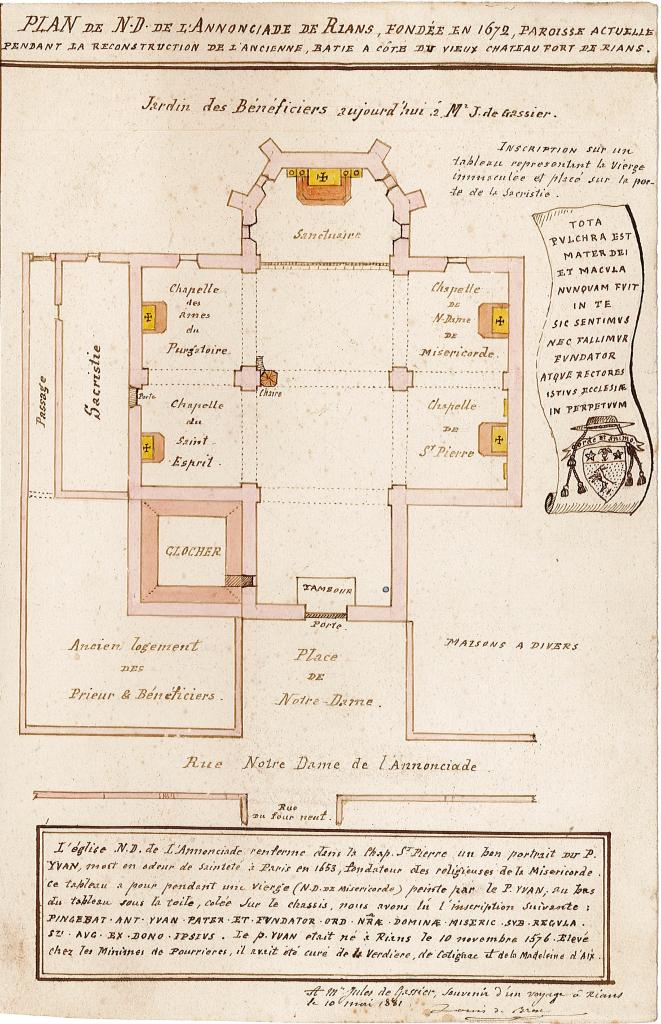 PLAN DE N·D· DE L'ANNONCIADE DE RIANS, FONDÉE EN 1672, PAROISSE ACTUELLE
PENDANT LA RECONSTRUCTION DE L'ANCIENNE, BATIE A CÔTE DU VIEUX CHATEAU FORT DE RIANS.
Jardin des Bénéficiers aujourd'hui à Mr J. de Gassier.
INSCRIPTION sur un
tableau representant la Vierge
immaculée et placé sur la por-
te de la Sacristie.
TOTA
PVLCHRA EST
MATER DEI
ET MACVLA
NVNQVAM FVIT
IN TE
SIC SENTIMVS
NEC FALLIMVR
FVNDATOR
ATQVE RECTORES
ISTIVS ECCLESIÆ
IN PERPETVVM
corde et animo
Sanctuaire
Chapelle
des
Ames
du
Purgatoire
Chapelle
DE
N·Dame
DE
Misericorde.
Passage
Sacristie
Porte
Chaire
Chapelle
du
Saint
Esprit
Chapelle
DE
St Pierre
CLOCHER
TAMBOUR
Porte.
Ancien logement
DES
Prieur & Bénéficiers.
Place
DE
Notre-Dame.
MAISONS A DIVERS
Rue Notre Dame de l'Annonciade
Rue
Du four neuf.
L'église N.D. de L'Annonciade renferme dans la Chap. St Pierre un bon portrait DU P.
YVAN, mort en odeur de sainteté à Paris en 1653, fondateur des religieuses de la Misericorde.
ce tableau a pour pendant une Vierge (N.D. DE Misericorde) peinte par le P. YVAN, au bas
du tableau sous la toile, colée sur le chassis, nous avons lu l'inscription suivante:
PINGEBAT · ANT · YVAN · PATER · ET · FVNDATOR · ORD · NRÆ · DOMINÆ · MISERIC · SVB · REGVLA ·
STI · AVG · EX · DONO · IPSIVS . Le p. YVAN etait né à Rians le 10 novembre 1576. Elevé
chez les Minimes de Pourrieres, il avait été curé de la Verdière, de Cotignac et de la Madeleine d'Aix.
A Mr Jules de Gassier, souvenir d'un voyage à Rians
le 10 mai 1881
Louis de Bresc